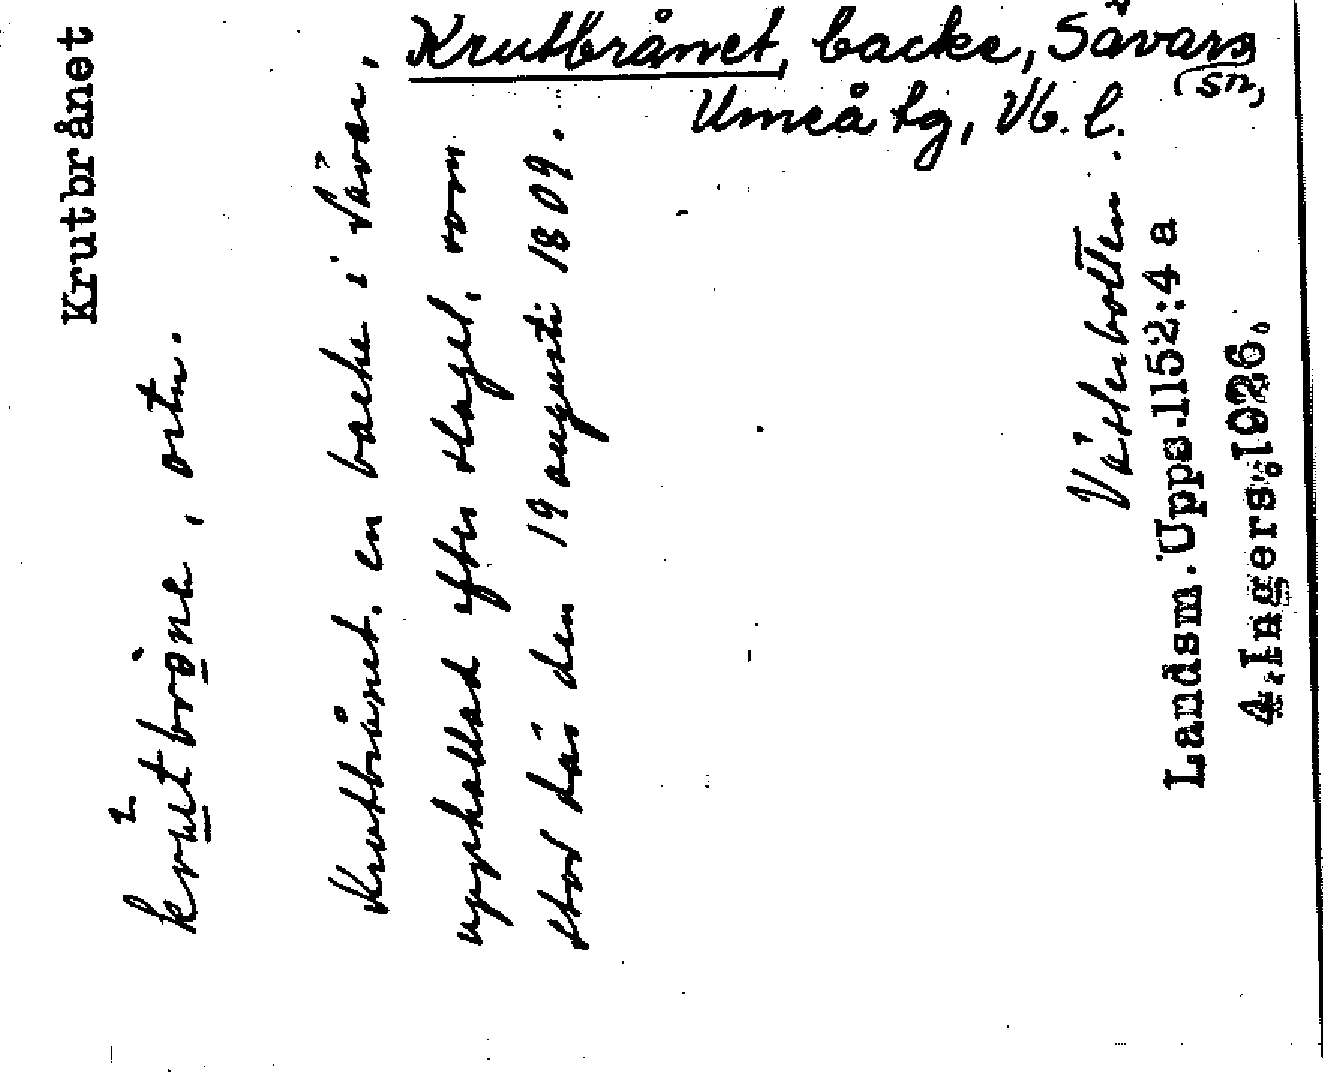 Krutbrånet, backe, Sävars
sn,
Umeå tg, Vb. l.
Krutbrånet
krùtbrǻne, ortn.
Krutbrånet, en backe i Sävar,
uppkallad efter slaget, som
stod där den 19 augusti 1809.
Västerbotten.
Landsm. Upps.1152:4 a
A.Ingers.1926.